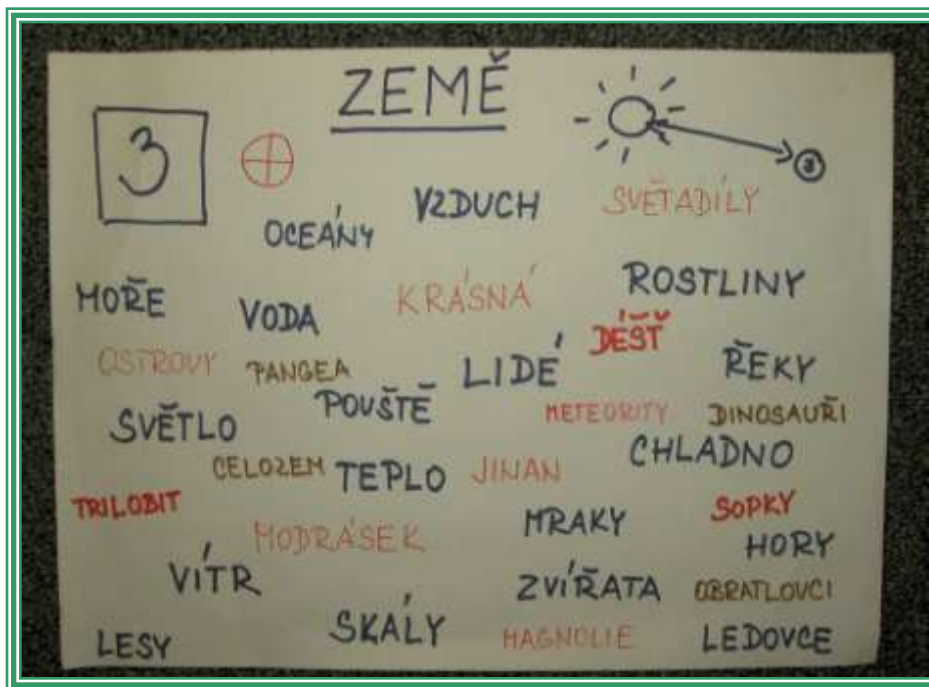 ZEMĚ
3
3
VZDUCH SVĚTADÍLY
OCEÁNY
MOŘE VODA KRÁSNÁ ROSTLINY
OSTROVY PANGEA LIDÉ DÉŠŤ ŘEKY
SVĚTLO POUŠTĚ METEORITY DINOSAUŘI
CELOZEM TEPLO JINAN CHLADNO
TRILOBIT MODRÁSEK MRAKY SOPKY
HORY
VÍTR ZVÍŘATA OBRATLOVCI
LESY SKÁLY MAGNOLIE LEDOVCE